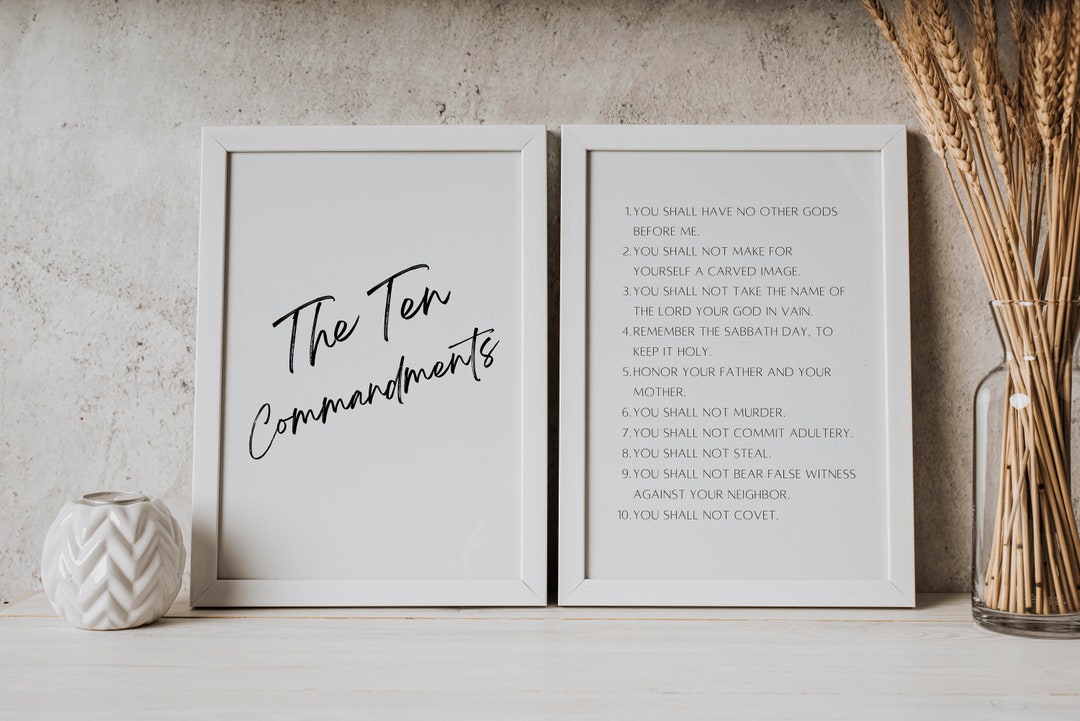 The Ten
Commandments
1. YOU SHALL HAVE NO OTHER GODS
BEFORE ME.
2. YOU SHALL NOT MAKE FOR
YOURSELF A CARVED IMAGE.
3. YOU SHALL NOT TAKE THE NAME OF
THE LORD YOUR GOD IN VAIN.
4. REMEMBER THE SABBATH DAY, TO
KEEP IT HOLY.
5. HONOR YOUR FATHER AND YOUR
MOTHER.
6. YOU SHALL NOT MURDER.
7. YOU SHALL NOT COMMIT ADULTERY.
8. YOU SHALL NOT STEAL.
9. YOU SHALL NOT BEAR FALSE WITNESS
AGAINST YOUR NEIGHBOR.
10. YOU SHALL NOT COVET.